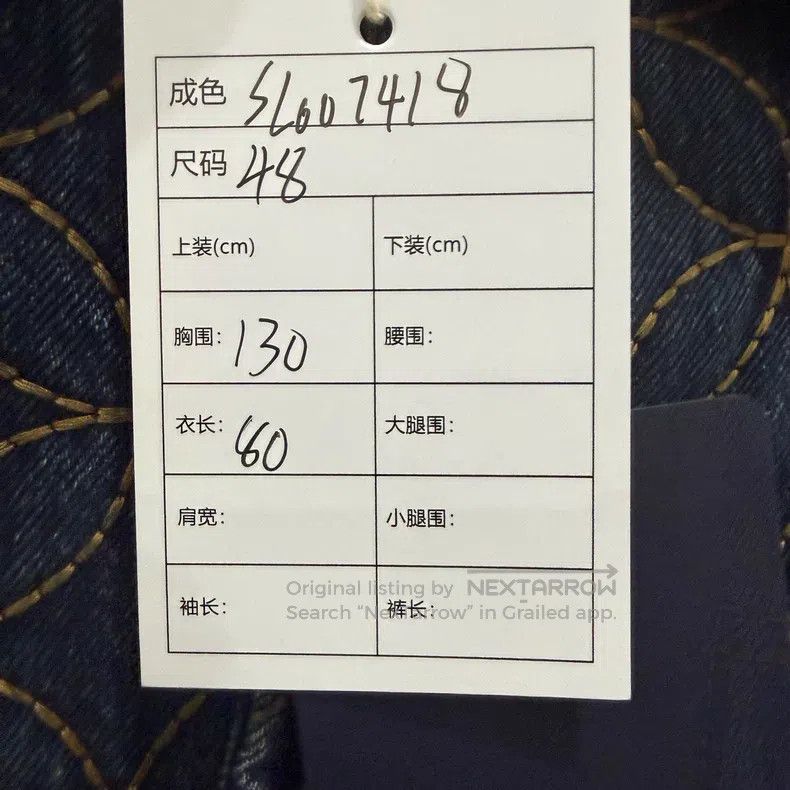 成色 SL607418
尺码 48
上装(cm) 下装(cm)
胸围: 130 腰围:
衣长: 60 大腿围:
肩宽: 小腿围:
袖长: 裤长:
Original listing by NEXTARROW
Search "Nextarrow" in Grailed app.